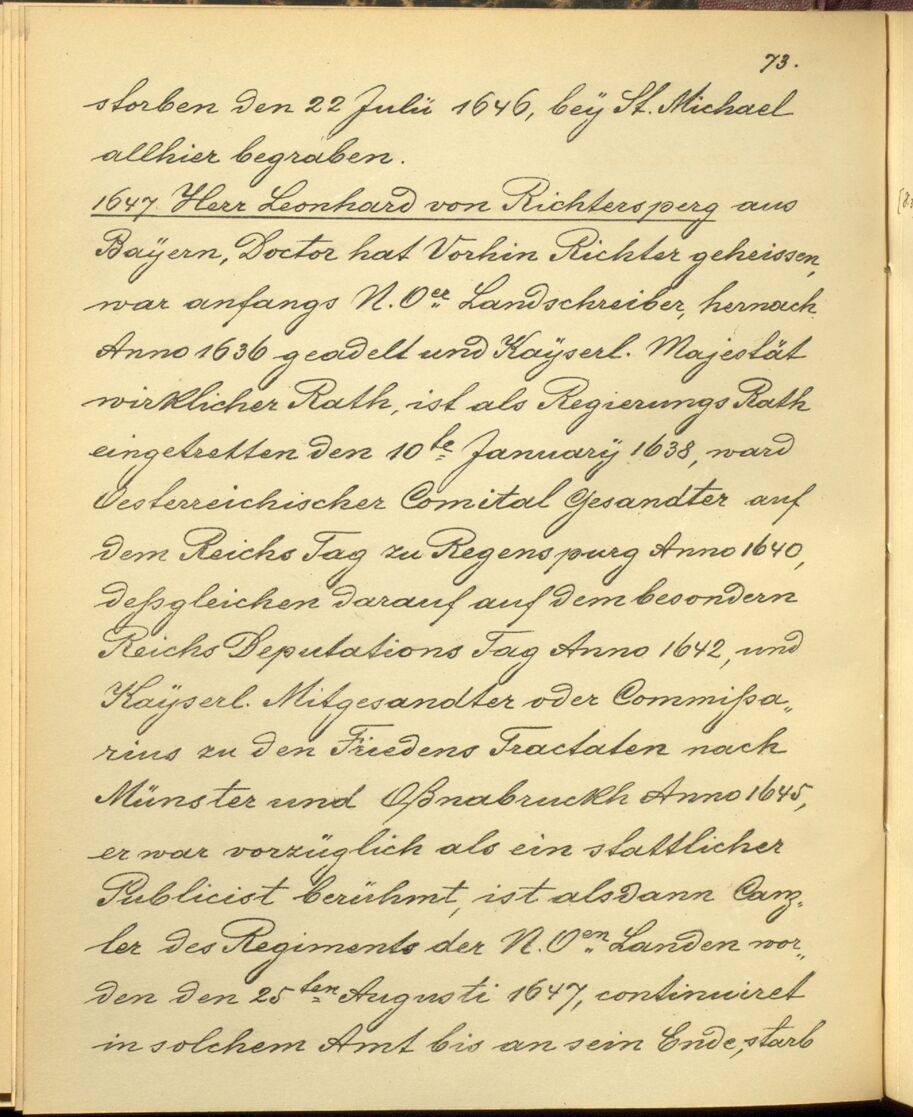 73.
storben den 22 Julii 1646, beÿ St. Michael
allhier begraben.
1647. Herr Leonhard von Richtersperg aus
Baÿern, Doctor hat Vorhin Richter geheissen,
war anfangs N. Oer Landschreiber, hernach
Anno 1636 geadelt und Kaÿserl. Majestät
wirklicher Rath, ist als Regierungs Rath
eingetretten den 10te January 1638, ward
Oesterreichischer Comital Gesandter auf
dem Reichs Tag zu Regenspurg Anno 1640,
deßgleichen darauf auf dem besondern
Reichs Deputations Tag Anno 1642, und
Kaÿserl. Mitgesandter oder Commißa„
rius zu den Friedens Tractaten nach
Münster und Oßnabruckh Anno 1645,
er war vorzüglich als ein stattlicher
Publicist berühmt, ist alsdann Canz„
ler des Regiments der N. Oen Landen wor„
den den 25ten Augusti 1647, continuiret
in solchem Amt bis an sein Ende, starb